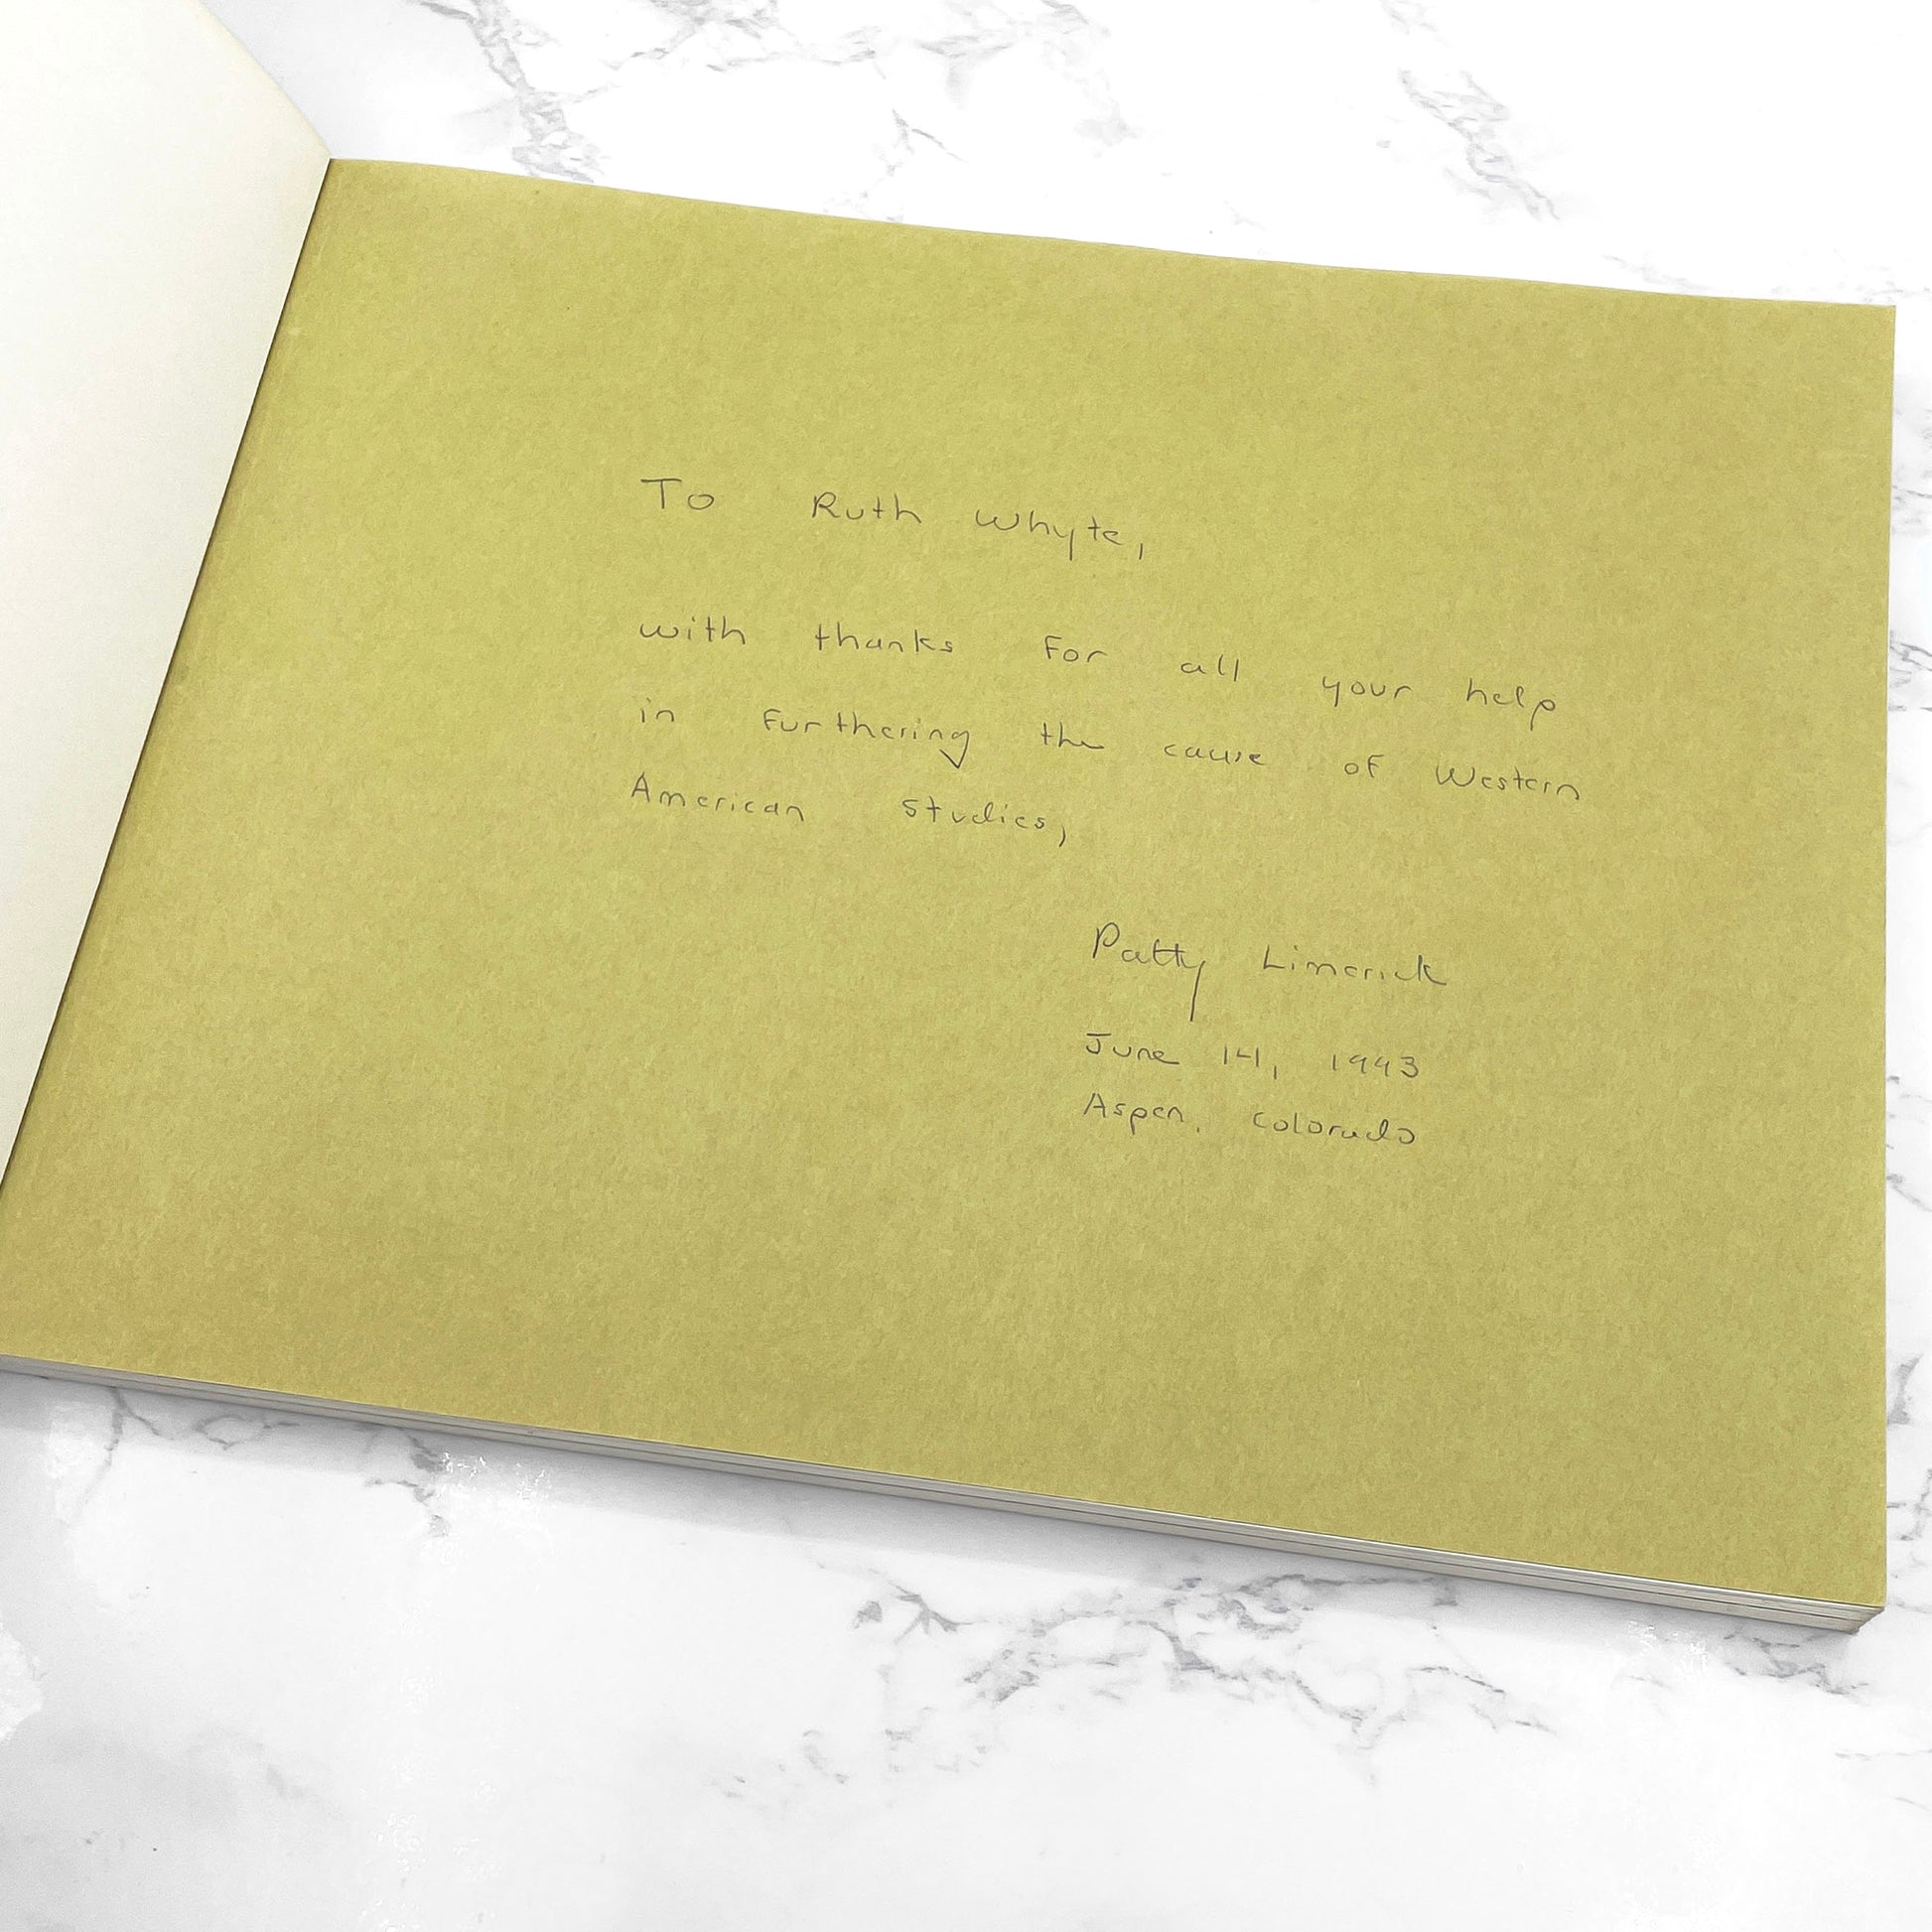 To Ruth Whyte,
with thanks for all your help
in furthering the cause of Western
American Studies,
Patty Limerick
June 14, 1993
Aspen, Colorado